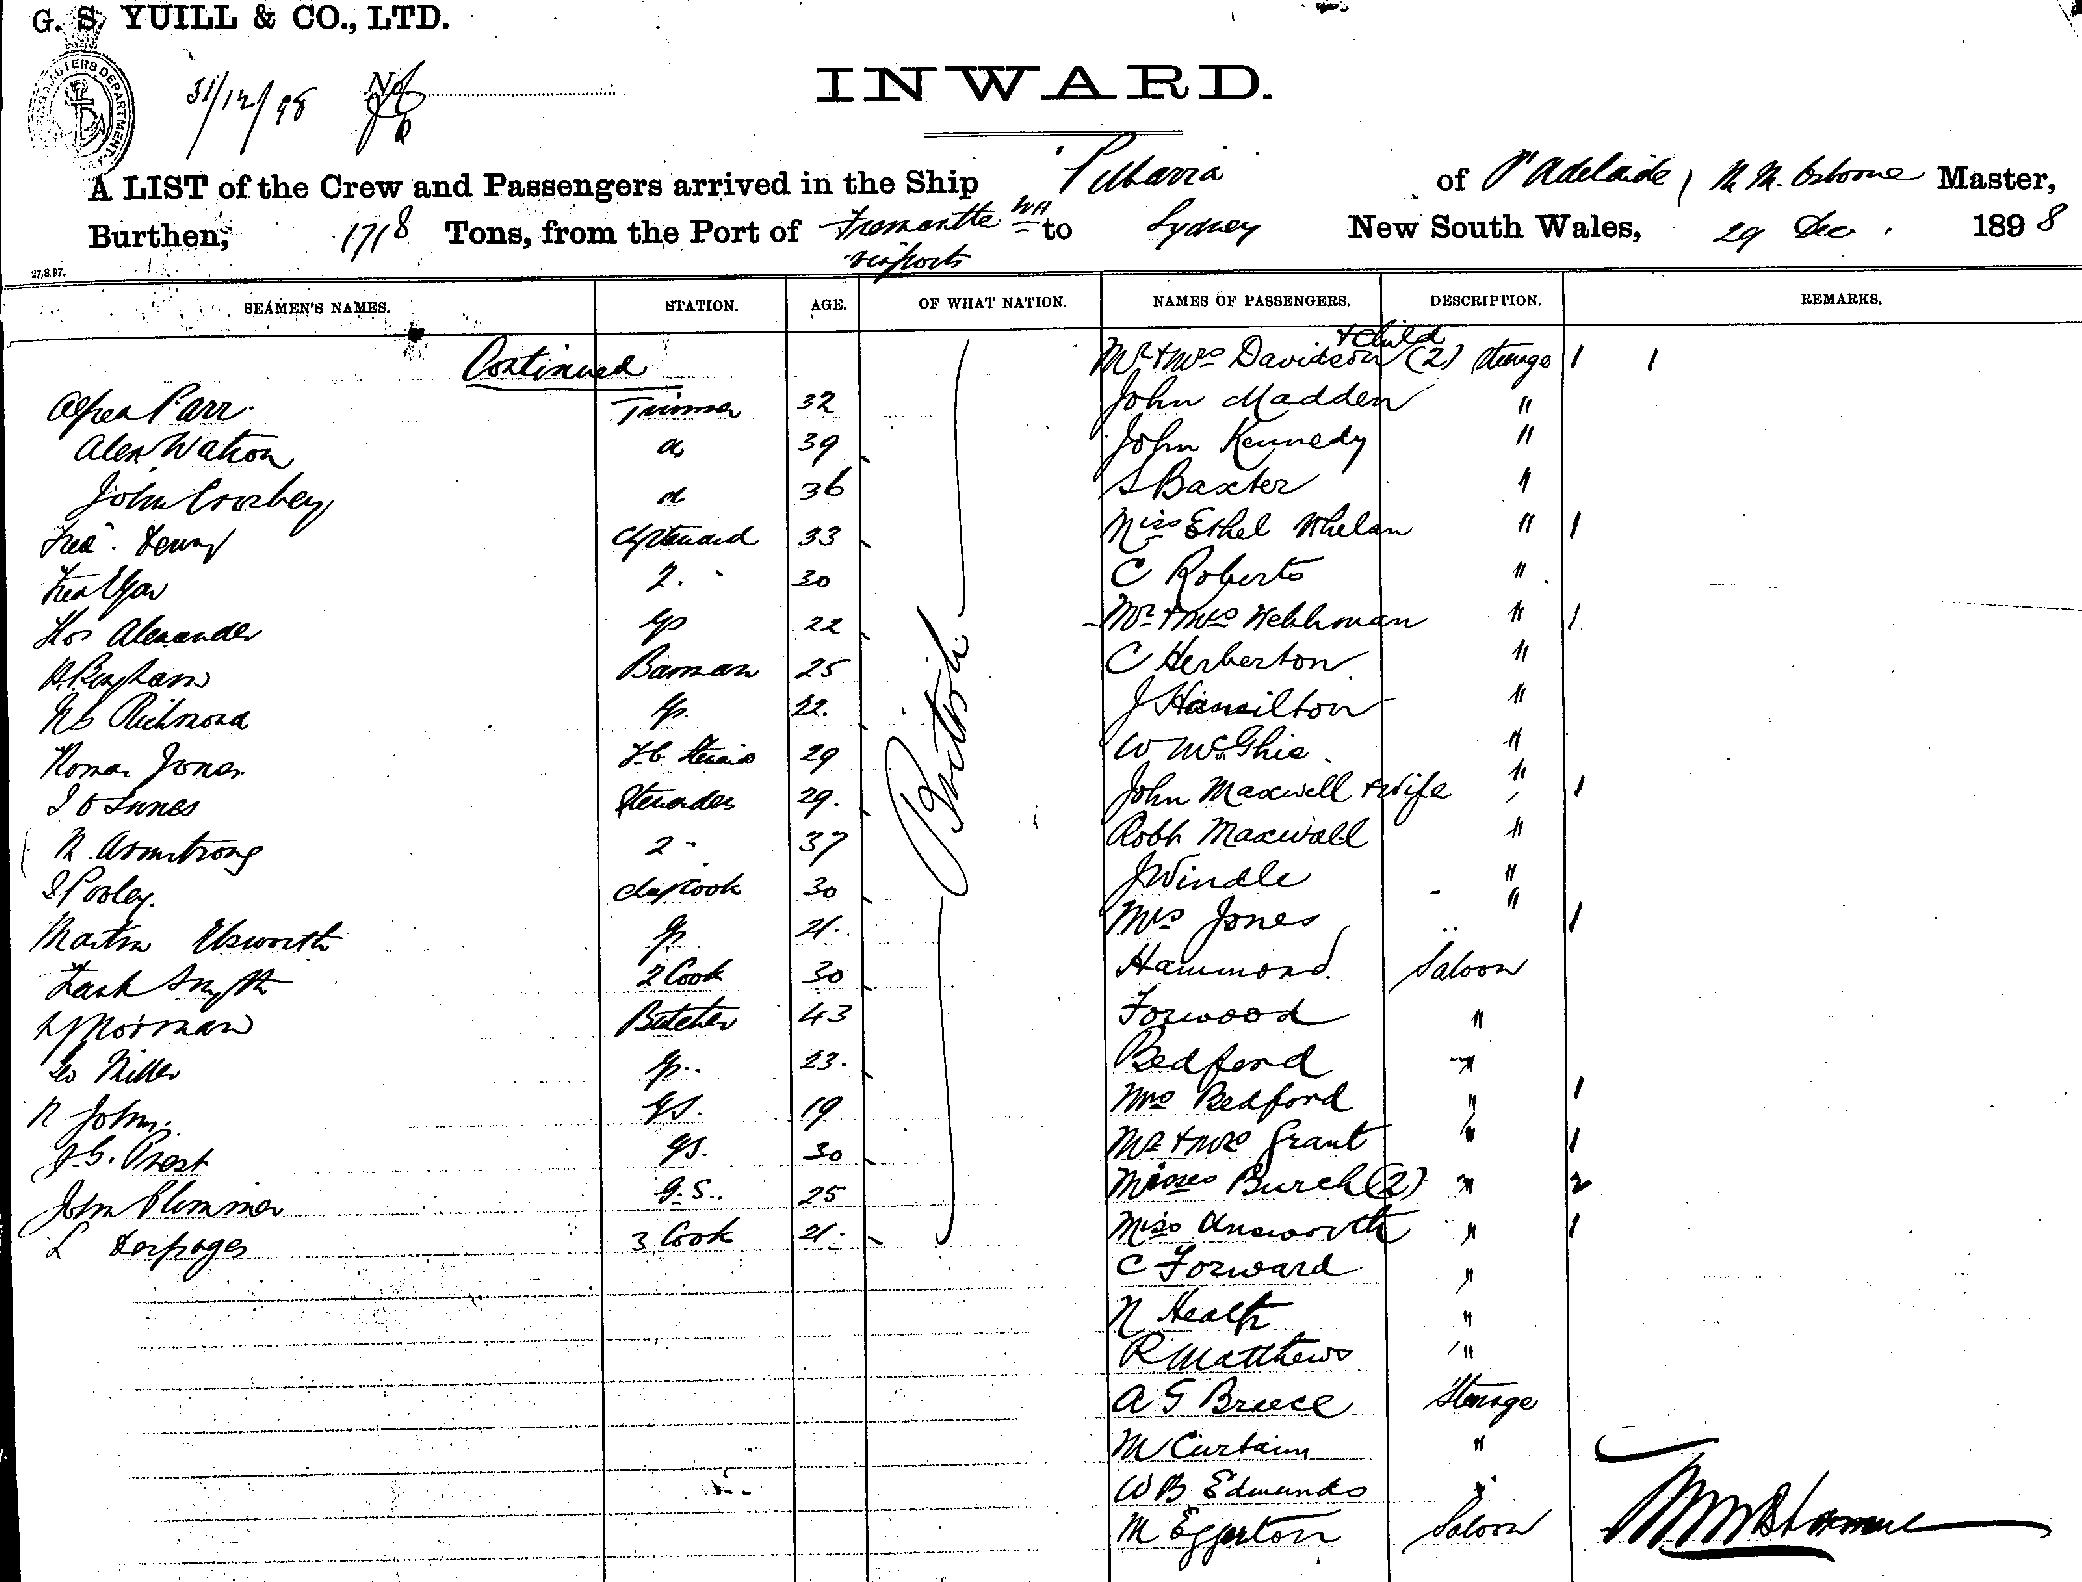 G. S. YUILL & CO., LTD.
31/12/98
INWARD.
A LIST of the Crew and Passengers arrived in the Ship "Pilbarra of Pt Adelaide, Osborne Master,
Burthen, 1718 Tons, from the Port of Fremantle WA to Sydney New South Wales, 29 Dec. 1898
via ports
27.8.97.
SEAMEN'S NAMES. STATION. AGE. OF WHAT NATION. NAMES OF PASSENGERS. DESCRIPTION. REMARKS.
Continued Mr & Mrs Davidson & Child (2) Steerage 1 1
Alfred Parr Trimmer 32 John Madden "
Alex Watson 39 John Kennedy "
John Crosbey 36 S Baxter "
33 Miss Ethel Whelan " 1
2. " 30 C Roberts "
Alexander 22 Mr & Mrs " 1
Bingham Barman 25 C Herberton "
Richmond 22. J Hamilton "
Jones 29 W McGhie "
Innes Stewardess 29. John Maxwell & Wife " 1
Armstrong 2 " 37 Robt Maxwell "
Pooley. 30 J Windle "
Martin Elsworth 21. Mrs Jones " 1
Frank Smyth 2 Cook 30 Hammond Saloon
Norman Butcher 43 Forwood "
Miller 23. Bedford "
John G.S. 19 Mrs Bedford " 1
J.G. Prest G.S. 30 Mr & Mrs Grant " 1
John Plummer G.S. 25 Misses Burch (2) " 2
L 3 Cook 21. Miss Unsworth " 1
British
C Forward "
N Heath "
R Matthews "
A G Breece Steerage
M Curtain "
W B Edmunds "
M Eggerton Saloon